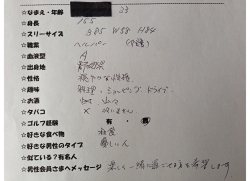 ☆なまえ・年齢 33
☆身長 155
☆スリーサイズ B85 W58 H84
☆職業 ヘルパー (介護)
☆血液型 A
☆出身地
☆性格 穏やかな性格
☆趣味 料理・ショッピング、ドライブ
☆お酒
☆タバコ × 吸いません
☆ゴルフ経験 有・無
☆好きな食べ物 和食
☆好きな男性のタイプ 優しい人
☆似ている？有名人
☆男性会員さまへメッセージ 楽しく一緒に過ごせる方を希望します